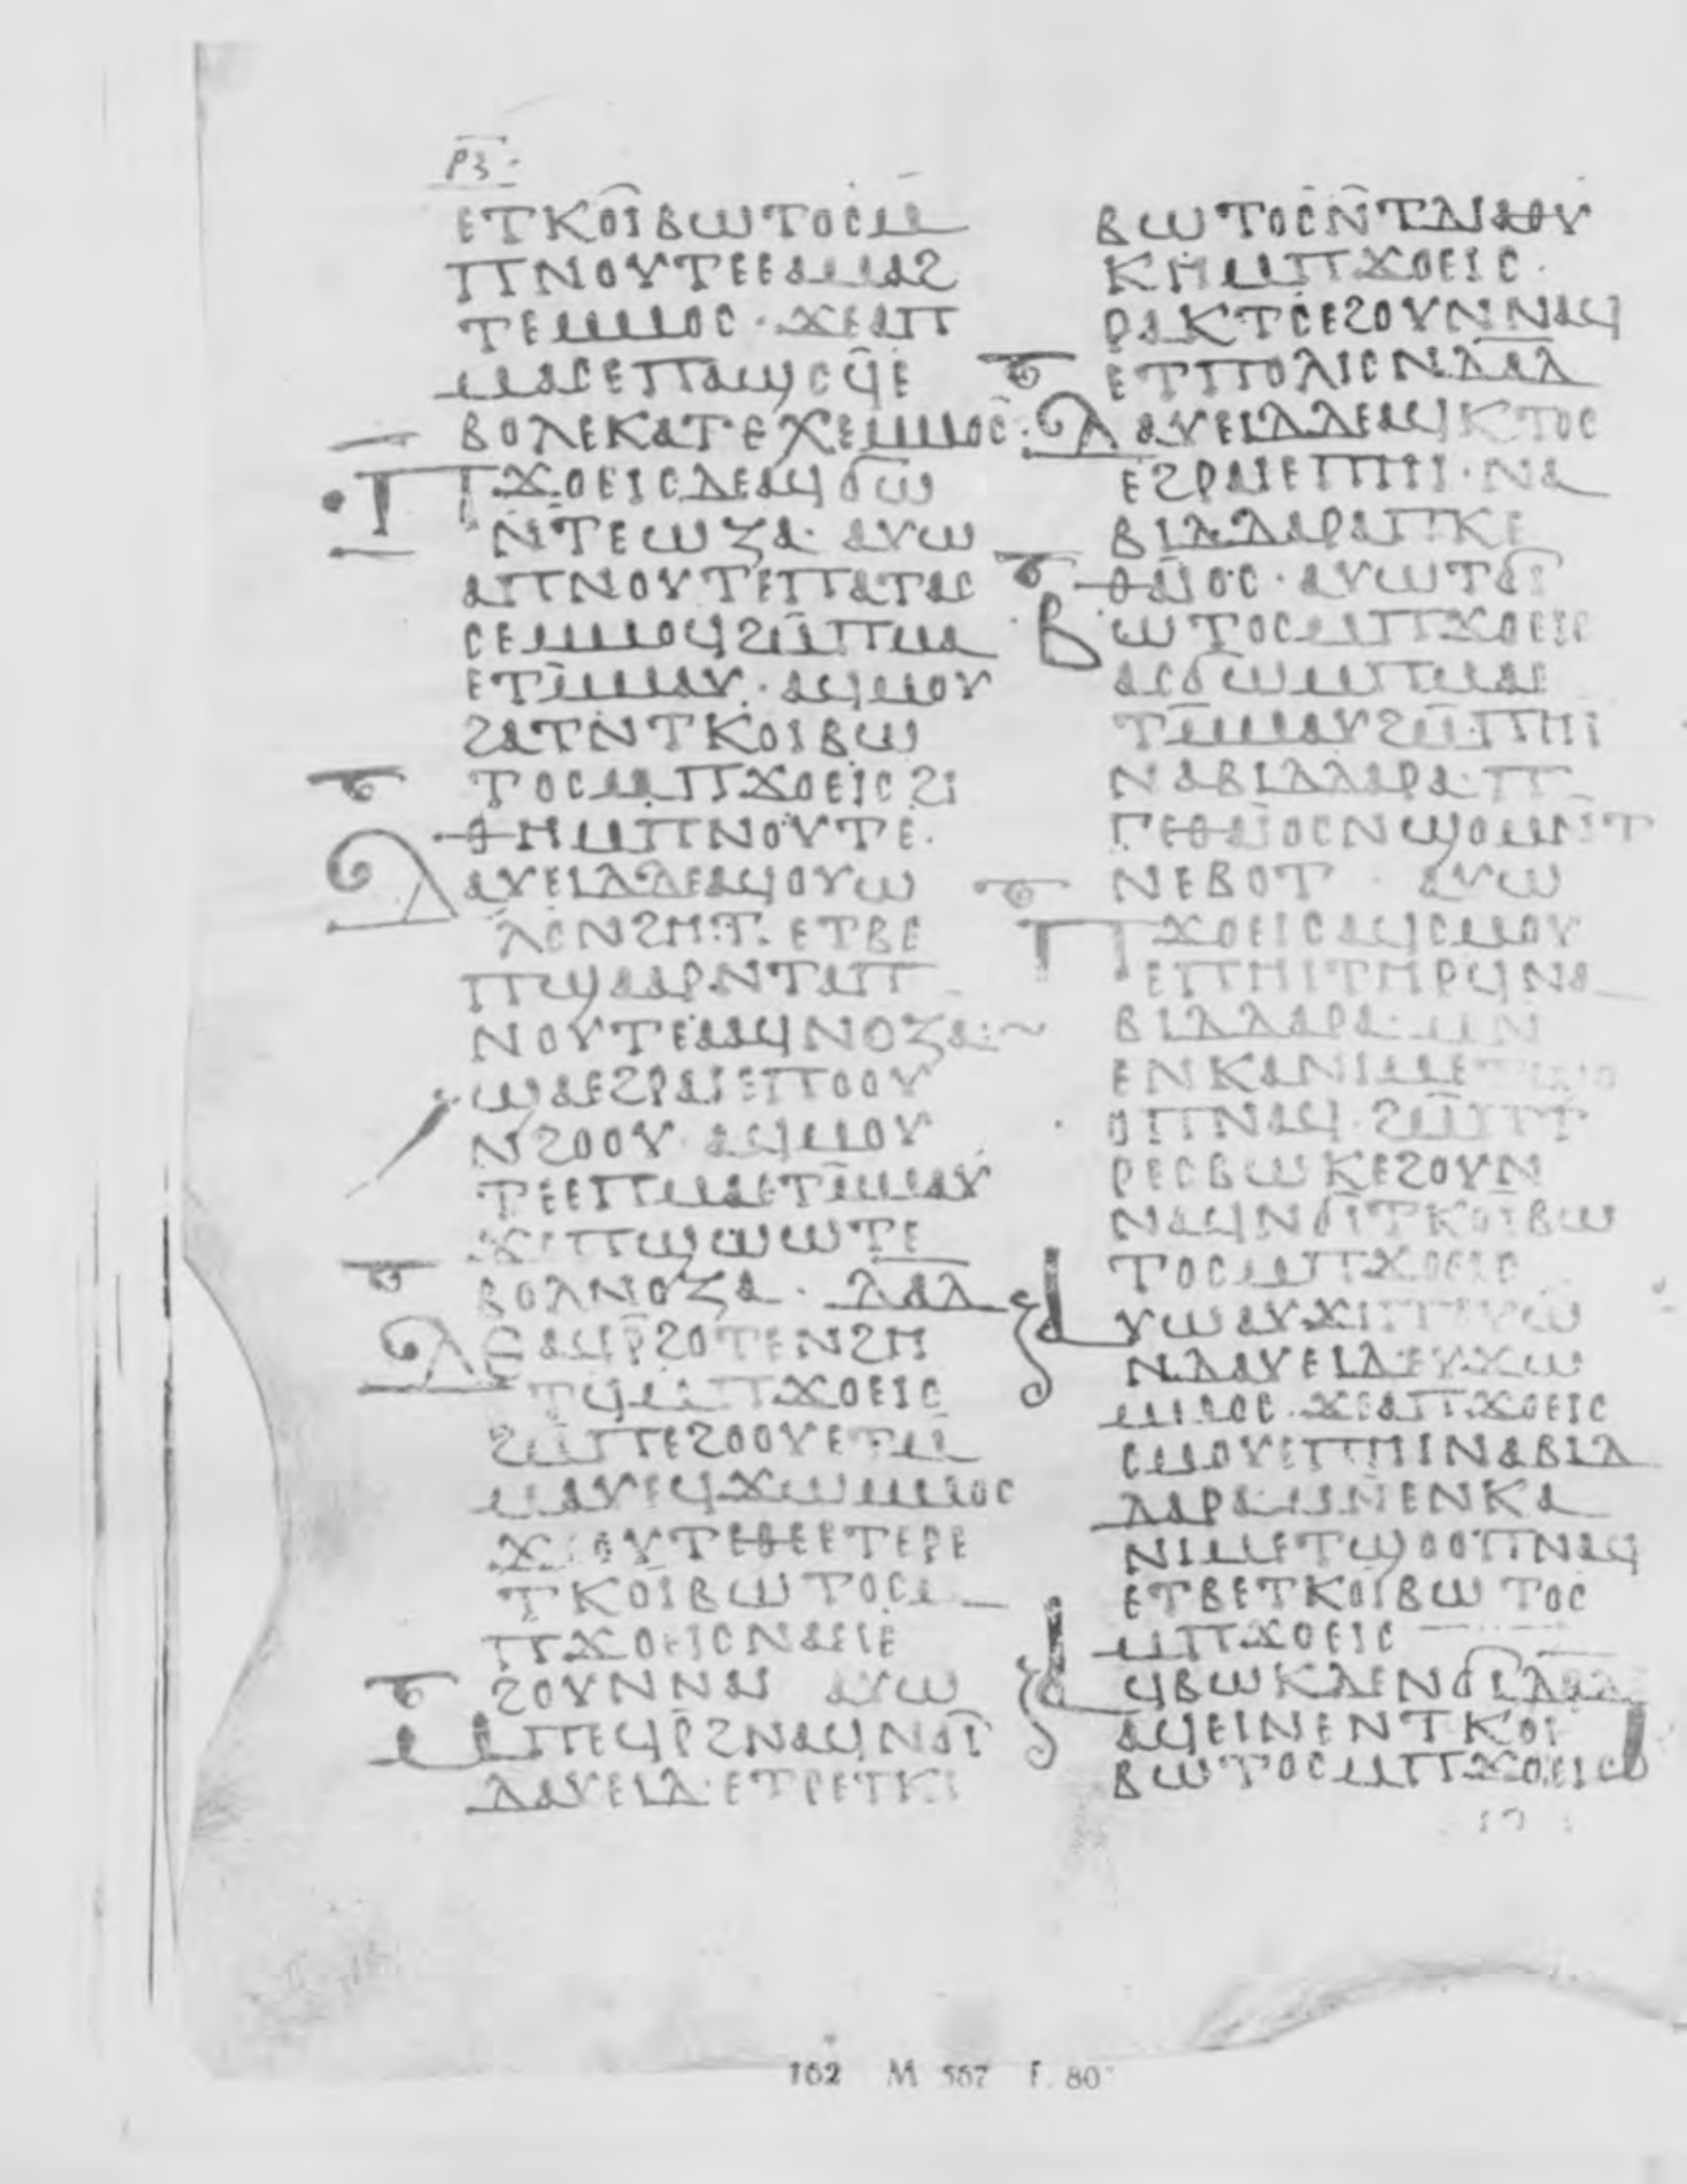 ⲣⲝ
ⲉⲧⲕⲟⲓⲃⲱⲧⲟⲥⲙ
ⲡⲛⲟⲩⲧⲉⲉⲁⲙⲁϩ
ⲧⲉⲙⲙⲟⲥ·ϫⲉⲁⲡ
ⲙⲁⲥⲉⲡⲁϣⲥϥⲉ
ⲃⲟⲗⲉⲕⲁⲧⲉⲭⲉⲙⲙⲟⲥ·
ⲡϫⲟⲉⲓⲥⲇⲉⲁϥϭⲱ
ⲛⲧⲉⲱⲍⲁ·ⲁⲩⲱ
ⲁⲡⲛⲟⲩⲧⲉⲡⲁⲧⲁⲥ
ⲥⲉⲙⲙⲟϥϩⲙⲡⲙⲁ
ⲉⲧⲙⲙⲁⲩ·ⲁϥⲙⲟⲩ
ϩⲁⲧⲛⲧⲕⲟⲓⲃⲱ
ⲧⲟⲥⲙⲡϫⲟⲉⲓⲥϩⲓ
ⲑⲏⲙⲡⲛⲟⲩⲧⲉ·
ⲇⲁⲩⲉⲓⲇⲇⲉⲁϥⲟⲩⲱ
ⲗⲥⲛϩⲏⲧ·ⲉⲧⲃⲉ
ⲡϣⲁⲁⲣⲛⲧⲁⲡ
ⲛⲟⲩⲧⲉⲁⲁϥⲛⲟⲍⲁ·
ϣⲁⲉϩⲣⲁⲓⲉⲡⲟⲟⲩ
ⲛϩⲟⲟⲩ·ⲁϥⲙⲟⲩ
ⲧⲉⲉⲡⲙⲁⲉⲧⲙⲙⲁⲩ
ϫⲉⲡϣⲱⲱⲧⲉ
ⲃⲟⲗⲛⲟⲍⲁ·ⲇⲁⲇ
ⲇⲉⲁϥⲣϩⲟⲧⲉⲛϩⲏ
ⲧϥⲙⲡϫⲟⲉⲓⲥ
ϩⲙⲡⲉϩⲟⲟⲩⲉⲧⲙ
ⲙⲁⲩⲉϥϫⲱⲙⲙⲟⲥ
ϫⲉⲟⲩⲧⲉⲑⲉⲉⲧⲉⲣⲉ
ⲧⲕⲟⲓⲃⲱⲧⲟⲥⲙ
ⲡϫⲟⲉⲓⲥⲛⲁⲉⲓⲉ
ϩⲟⲩⲛⲛⲁⲓ ⲁⲩⲱ
ⲙⲡⲉϥⲣϩⲛⲁϥⲛϭⲓ
ⲇⲁⲩⲉⲓⲇ·ⲉⲧⲣⲉⲧⲕⲓ
ⲃⲱⲧⲟⲥⲛⲧⲇⲓⲁⲑⲩ
ⲕⲏⲙⲡϫⲟⲉⲓⲥ·
ⲣⲁⲕⲧⲥⲉϩⲟⲩⲛⲛⲁϥ
ⲉⲧⲡⲟⲗⲓⲥⲛⲇⲁⲇ
ⲇⲁⲩⲉⲓⲇⲇⲉⲁϥⲕⲧⲟⲥ
ⲉϩⲣⲁⲓⲉⲡⲏⲓ·ⲛⲁ
ⲃⲓⲇⲇⲁⲣⲁⲡⲕⲉ
ⲑⲁⲓⲟⲥ·ⲁⲩⲱⲧϭⲓ
ⲃⲱⲧⲟⲥⲙⲡϫⲟⲉⲓⲥ
ⲁⲥϭⲱⲙⲡⲙⲁⲉ
ⲧⲙⲙⲁⲩϩⲙⲡⲏⲓ
ⲛⲁⲃⲓⲇⲇⲁⲣⲁ·ⲡ
ⲅⲉⲑⲁⲓⲟⲥⲛϣⲟⲙⲛⲧ
ⲛⲉⲃⲟⲧ·ⲁⲩⲱ
ⲡϫⲟⲉⲓⲥⲁϥⲥⲙⲟⲩ
ⲉⲡⲏⲓⲧⲏⲣϥⲛⲁ
ⲃⲓⲇⲇⲁⲣⲁ·ⲙⲛ
ⲉⲛⲕⲁⲛⲓⲙⲉⲧϣⲟ
ⲟⲡⲛⲁϥ·ϩⲙⲡⲧ
ⲣⲉⲥⲃⲱⲕⲉϩⲟⲩⲛ
ⲛⲁϥⲛϭⲓⲧⲕⲟⲓⲃⲱ
ⲧⲟⲥⲙⲡϫⲟⲉⲓⲥ
ⲁⲩⲱⲁⲩϫⲓⲡⲟⲩⲱ
ⲛⲇⲁⲩⲉⲓⲇⲉⲩϫⲱ
ⲙⲙⲟⲥ·ϫⲉⲁⲡϫⲟⲉⲓⲥ
ⲥⲙⲟⲩⲉⲡⲏⲓⲛⲁⲃⲓⲇ
ⲇⲁⲣⲁⲙⲛⲉⲛⲕⲁ
ⲛⲓⲙⲉⲧϣⲟⲟⲡⲛⲁϥ
ⲉⲧⲃⲉⲧⲕⲟⲓⲃⲱⲧⲟⲥ
ⲙⲡϫⲟⲉⲓⲥ
ⲁϥⲃⲱⲕⲇⲉⲛϭⲓⲇⲁⲇ
ⲁϥⲉⲓⲛⲉⲛⲧⲕⲟⲓ
ⲃⲱⲧⲟⲥⲙⲡϫⲟⲉⲓⲥ
162 M 567 F. 80